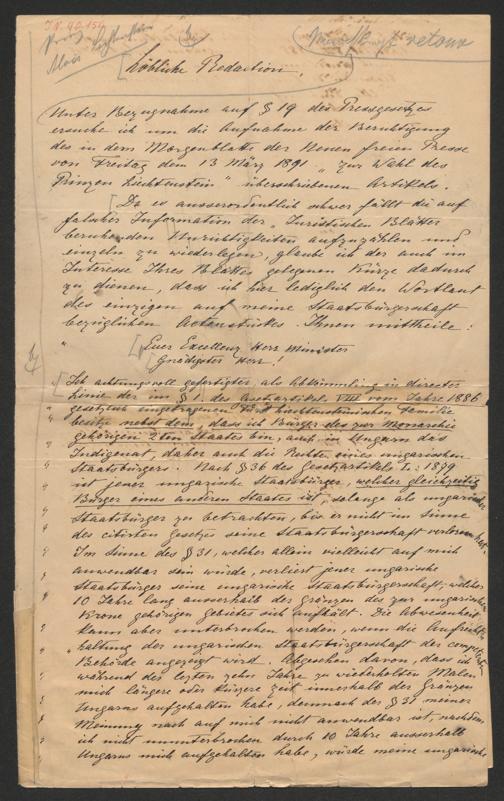 I.N. 90.154
Prinz
Alois Liechtenstein
retour
Löbliche Redaction,
Unter Bezugnahme auf § 19 des Pressgesetzes
ersuche ich um die Aufnahme der Berichtigung
des in dem Morgenblatte der Neuen freien Presse
von Freitag dem 13 März 1891 "zur Wahl des
Prinzen Liechtenstein" überschriebenen Artikels.
Da es ausserordentlich schwer fällt die auf
falscher Information der "Juristischen Blätter
beruhenden Unrichtigkeiten aufzuzählen und
einzeln zu wiederlegen, glaube ich der auch im
Interesse Ihres Blattes gelegenen Kürze dadurch
zu dienen, dass ich hier lediglich den Wortlaut
des einzigen auf meine Staatsbürgerschaft
bezüglichen Actenstückes Ihnen mittheile:
" Euer Excellenz Herr Minister
Gnädigster Herr!
Ich achtungsvoll gefertigter, als Abkömmling in directer
Linie der im § 1. des Gesetzartikels VIII vom Jahre 1886
gesetzlich eingetragenen Fürst Liechtensteinischen Familie
besitze nebst dem, dass ich Bürger des zur Monarchie
gehörigen 2ten Staates bin, auch in Ungarn das
Indigenat, daher auch die Rechte eines ungarischen
Staatsbürgers. Nach § 36 des Gesetzartikels L: 1879
ist jener ungarische Staatsbürger, welcher gleichzeitig
Bürger eines anderen Staates ist, solange als ungarischer
Staatsbürger zu betrachten, bis er nicht im Sinne
des citirten Gesetzes seine Staatsbürgerschaft verloren hat.
Im Sinne des § 31, welcher allein vielleicht auf mich
anwendbar sein würde, verliert jener ungarische
Staatsbürger seine ungarische Staatsbürgerschaft, welcher
10 Jahre lang ausserhalb der Gränzen des zur ungarischen
Krone gehörigen Gebietes sich aufhält. Die Abwesenheit
kann aber unterbrochen werden, wenn die Aufrecht-
haltung der ungarischen Staatsbürgerschaft der competenten
Behörde angezeigt wird. Abgesehen davon, dass ich
während der lezten zehn Jahre zu wiederholten Malen
mich längere oder kürzere Zeit innerhalb der Gränzen
Ungarns aufgehalten habe, demnach der § 31 meiner
Meinung nach auf mich nicht anwendbar ist, nachdem
ich nicht ununterbrochen durch 10 Jahre ausserhalb
Ungarns mich aufgehalten habe, würde meine ungarische